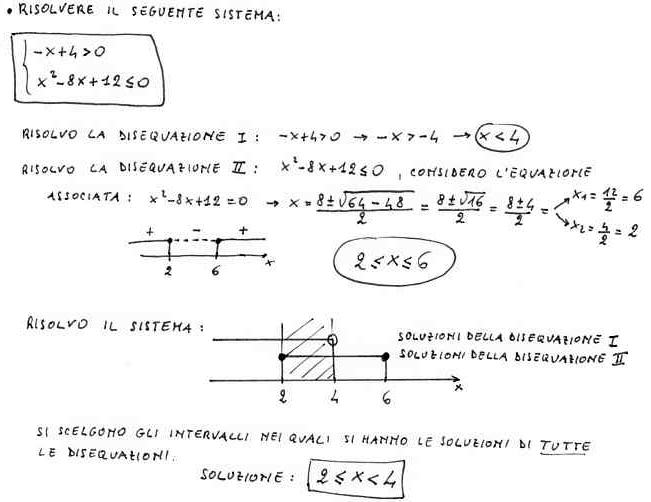 • RISOLVERE IL SEGUENTE SISTEMA:
-x+4>0
x²-8x+12≤0
RISOLVO LA DISEQUAZIONE I : -x+4>0 → -x>-4 → x<4
RISOLVO LA DISEQUAZIONE II : x²-8x+12≤0 , CONSIDERO L'EQUAZIONE
ASSOCIATA : x²-8x+12=0 → x = 8±√64-48/2 = 8±√16/2 = 8±4/2 = x₁=12/2=6
x₂=4/2=2
+ - +
2 6 x
2≤x≤6
RISOLVO IL SISTEMA :
SOLUZIONI DELLA DISEQUAZIONE I
SOLUZIONI DELLA DISEQUAZIONE II
2 4 6 x
SI SCELGONO GLI INTERVALLI NEI QUALI SI HANNO LE SOLUZIONI DI TUTTE
LE DISEQUAZIONI.
SOLUZIONE : 2≤x<4